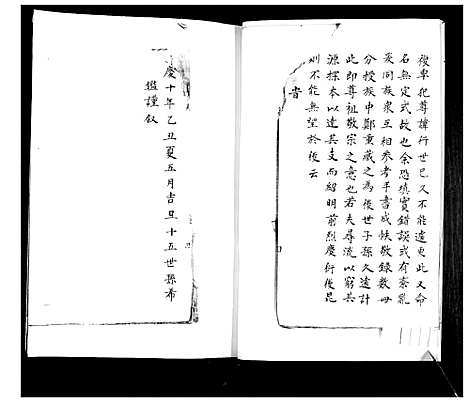 復卑犯尊諱行世已又不能遠更此又命
名無定式故也余恐填實錯誤或有紊亂
爰同族眾互相參考手書成帙敬錄數冊
分授族中鄭重藏之為後世子孫久遠計
此即尊祖敬宗之意也若夫尋流以窮其
源探本以達其支而紹明前烈慶衍後昆
則不能無望於後云
旹
慶十年乙丑夏五月吉旦十五世孫希
謹敘